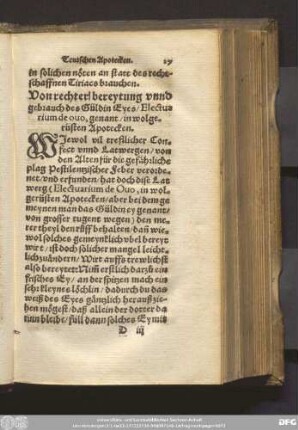 Teutschen Apotecken. 27
in solichen nöten an statt des recht-
schaffnen Tiriacs brauchen.
Von rechter bereytung vnnd
gebrauch des Güldin Eyes / Electua
rium de ouo, genant / in wolge-
rüsten Apotecken.
WJewol vil treflicher Con-
fect vnnd Latwergen / von
den Alten für die gefährliche
plag Pestilentzischer Feber verord-
net / vnd erfunden / hat doch dise Lat
werg (Electuarium de Ouo, in wol-
gerüsten Apotecken / aber bei dem ge
meynen man das Güldin ey genant /
von grosser tugent wegen) den me-
rer theyl den růff behalten / dañ wie-
wol solches gemeynklich übel bereyt
wirt / ist doch solicher mangel leiche-
lich zůändern / Wirt auffs trewlichst
also bereytet: Nim̃ erstlich darzů ein
frisches Ey / an der spitzen mach ein
sehr kleynes löchlin / dadurch du das
weiß des Eyes gäntzlich herauß zie-
hen mögest / daß allein der dotter da
rinn bleibe / füll dann solches Ey mit
D iij
DFG